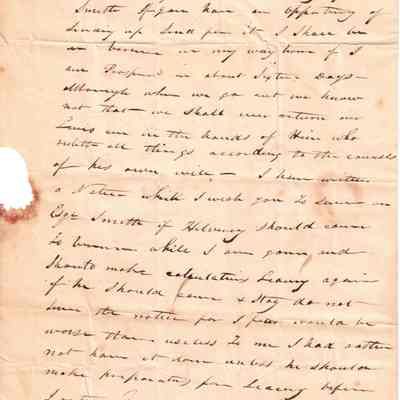 Smith if you have an Opportunity of
Sending up Send for it I Shall be
at Vernon on my way home if I
am Prosper'd in about Sixteen Days
although when we go out we know
not that we Shall ever return our
Lives are in the hands of Him who
ruleth all things according to the counsels
of his own will I have written
a Notice which I wish you to Serve on
Esqr Smith of should come
to Vernon while I am gone and
Should make calculation Leaving again
if he Should come & Stay do not
Serve the notice for I fear would be
worse than useless to me I had rather
not have it done unless he should
make preparation for Leaving before
I return